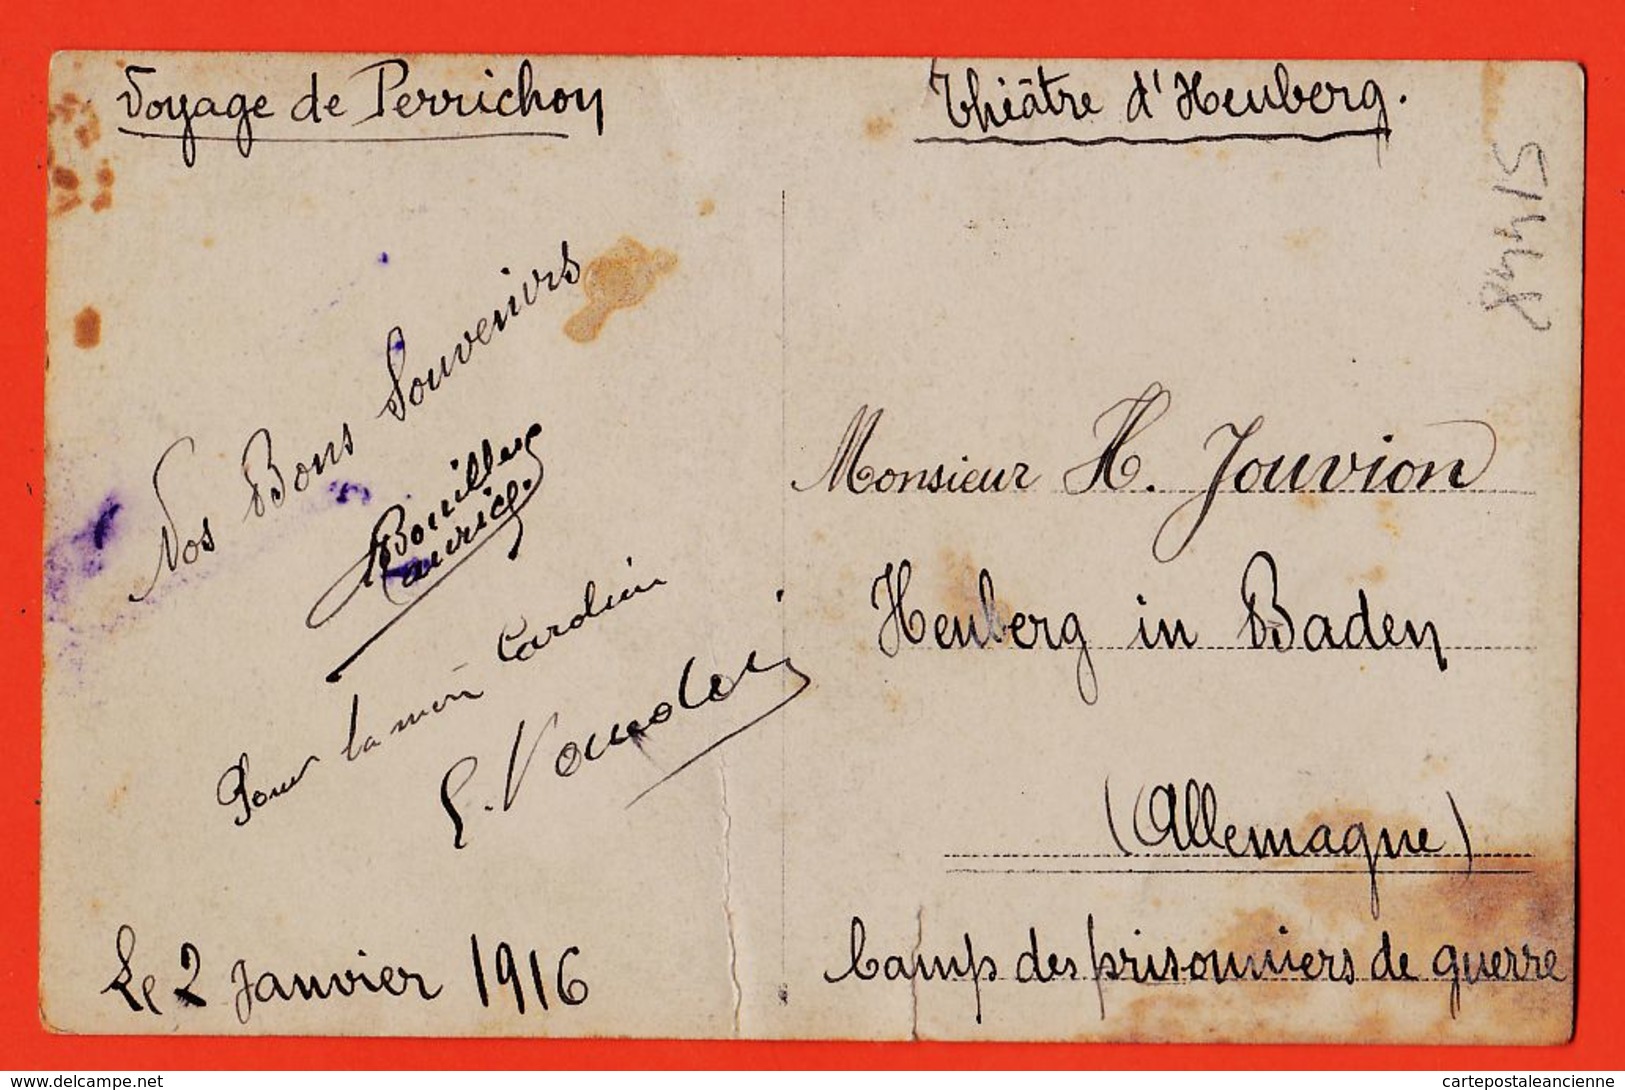 Voyage de Perrichon
Théâtre d'Heuberg.
51448
Vos Bons Souvenirs
Bouiller
Maurice.
Pour la
Cardin
Le 2 Janvier 1916
Monsieur H. Jouvion
Heuberg in Baden
(Allemagne)
Camp des prisonniers de guerre
delcampe.net
cartepostaleancienne